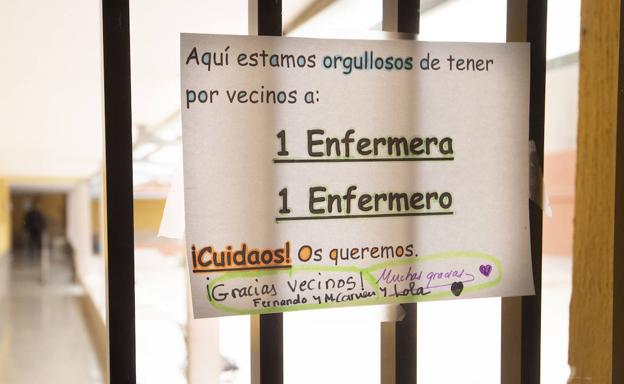 Aquí estamos orgullosos de tener
por vecinos a:
1 Enfermera
1 Enfermero
¡Cuidaos! Os queremos.
¡Gracias Vecinos! Muchas gracias
Fernando y MCarmen y Lola